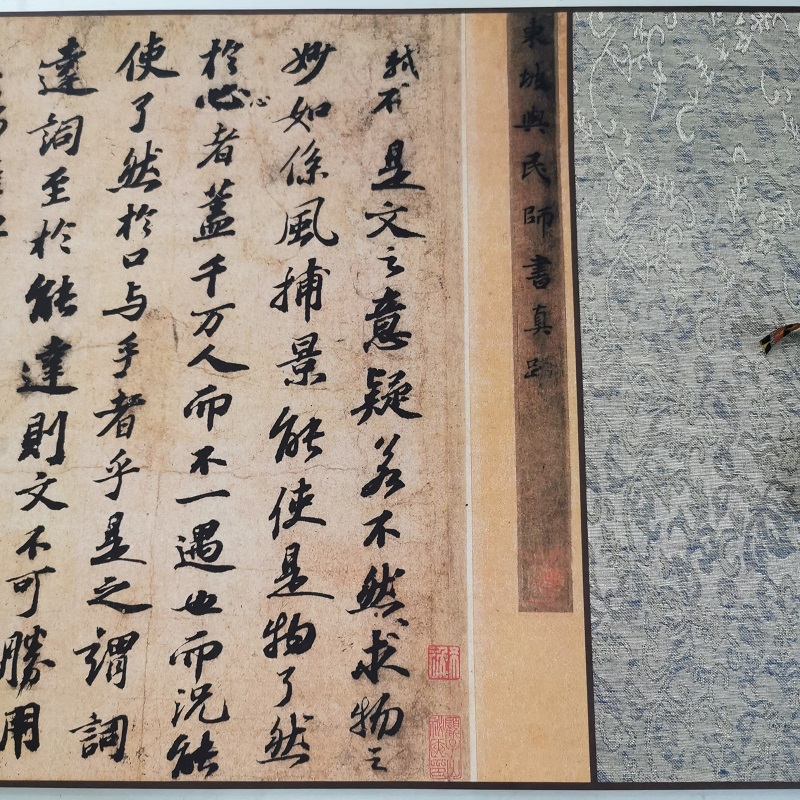 東坡與民師書真跡
是文之意疑若不然求物之
妙如係風捕景能使是物了然
於心者蓋千万人而不一遇也而況能
使了然於口与手者乎是之謂詞
達詞至於能達則文不可勝用